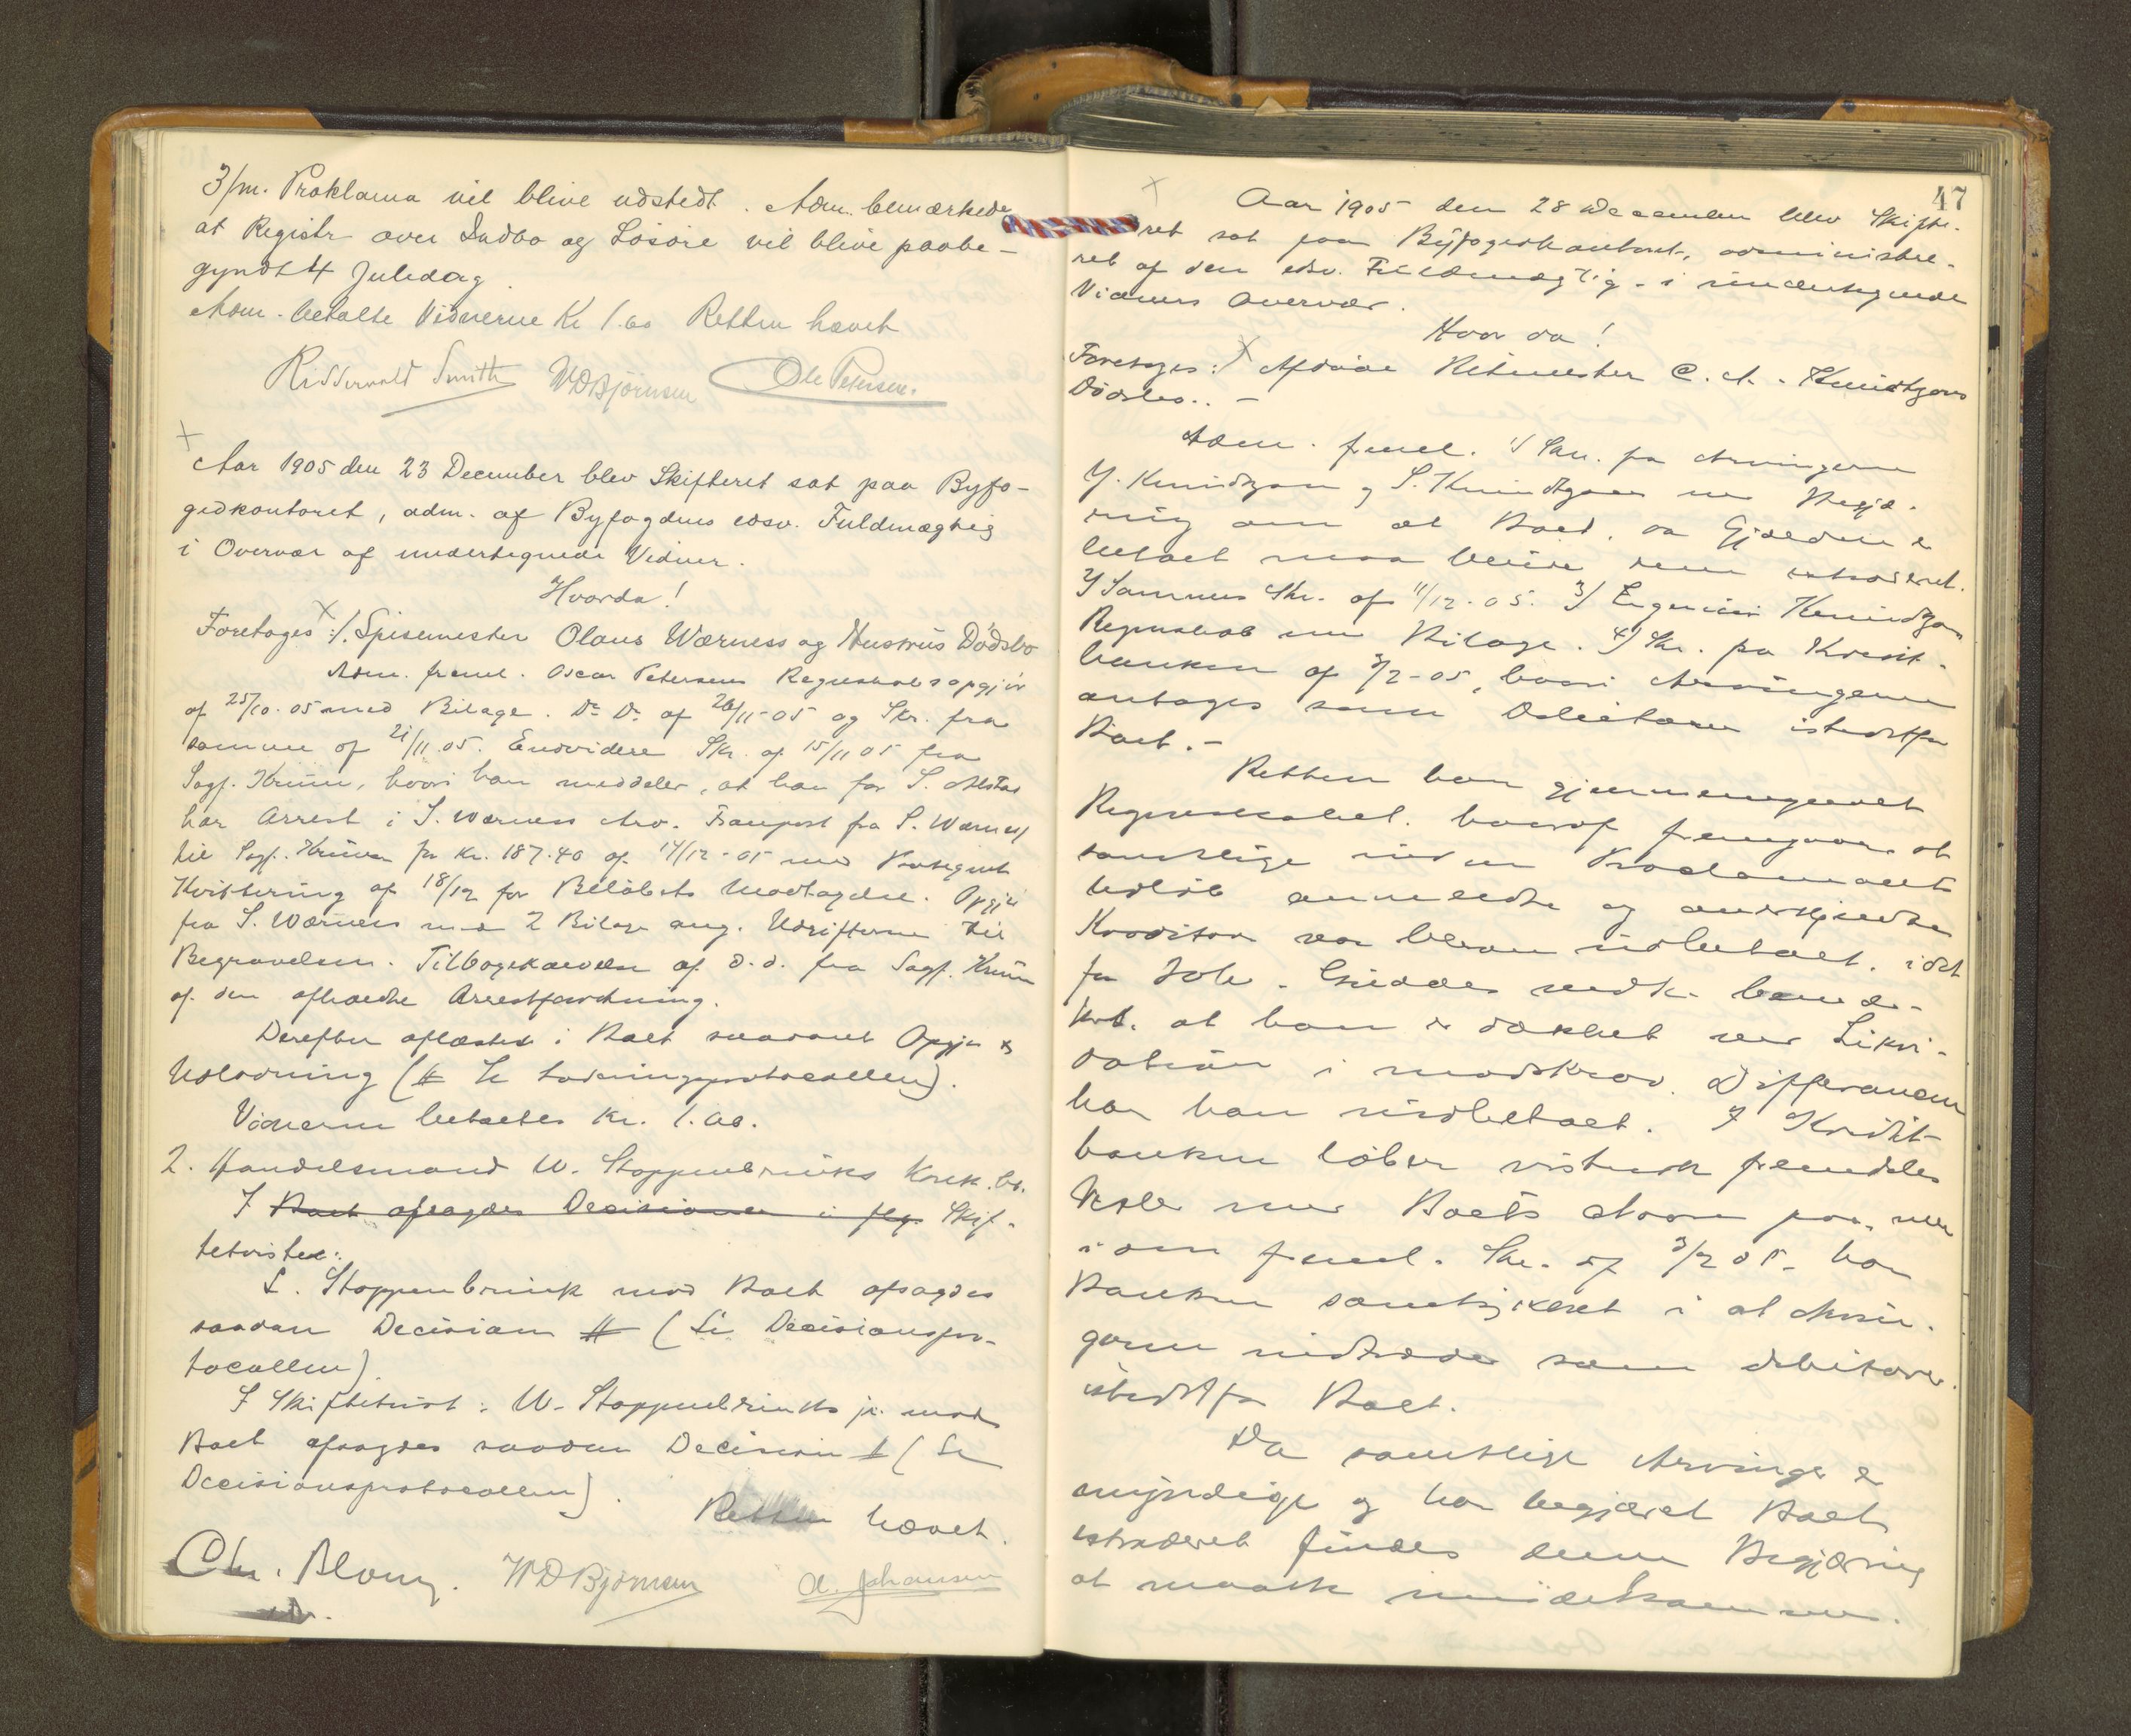 3/m. Proklama vil blive udstedt. Adm. bemærkede
at Registr over Indbo og Løsøre vil blive paabe-
gyndt 4 Juledag.
Adm. betalte Vidnerne Kr 1.60 Retten hævet
Ridderwold Smith WDBjörnsen Ole Petersen.
Aar 1905 den 23 December blev Skifteret sat paa Byfo-
gedkontoret, adm. af Byfogdens edsv. Fuldmægtig
i Overvær af undertegnede Vidner.
Hvorda!
Foretoges :/. Spisemester Olaus Wærness og Hustrus Dödsbo
Adm. freml. Oscar Petersens Regnskabsopgjör
af 25/10-05 med Bilage. Do Do af 20/11-05 og Skr. fra
samme af 21/11.05. Endvidere Skr. af 15/11 05 fra
Sagf. , hvori han meddeler, at han for S.
har Arrest i S. Wærness Arv. Transport fra S. Wærness
til Sagf. for Kr. 187.40 af 14/12-05 med
Kvittering af 18/12 for Beløbets Modtagelse. Opgjör
fra S. Wærness med 2 Bilage ang. Udgifterne til
Begravelsen. Tilbagekaldelse af d.d. fra Sagf.
af den afholdte Arrestforretning.
Derefter aflæstes i Boet saadant Opgjør &
Udlodning (# Se Lodningsprotocollen).
Vidnerne betaltes Kr. 1.60.
2. Handelsmand W. Stoppenbrinks Konk.bo.
I Boet afsagdes Decisioner i flg. Skif-
tetvister:
L. Stoppenbrink mod Boet afsagdes
saadan Decision # (Se Decisionspro-
tocollen).
I Skiftetvist: W. Stoppenbrinks jr. mod
Boet afsagdes saadan Decision # (Se
Decisionsprotocollen).
Retten hævet.
Chr. Blom WDBjörnsen A. Johansen
47
Aar 1905 den 28 December blev Skifte-
ret sat paa Byfogedkontoret, administre-
ret af den edsv. Fuldmægtig - i undertegnede
Vidners Overvær.
Hvor da!
Foretoges :/ Afdøde Ritmester C. A. Knudtzons
Dödsbo. -
Adm. freml. 1/ Skr. fra Arvingerne
Y. Knudtzon og S. Knudtzon med Begjæ-
ring om at Boet, da Gjælden er
betalt maa blive dem extraderet.
2/ Sammes Skr. af 11/12-05. 3/ Eugenie Knudtzon
Regnskab med Bilage. 4/ Skr. fra Kredit-
banken af 3/2-05, hvori Arvingerne
antages som Debitorer istedetfor
Boet. -
Retten har gjennemgaaet
Regnskabet, hvoraf fremgaar at
samtlige inden Proclamaets
Udløb anmeldte og anerkjendte
Kreditorer er bleven udbetalt, idet
for
at han er dækket ved Likvi-
dation i modkrav. Differancen
har han indbetalt. I Kredit-
banken løber vistnok fremdeles
Vexler med Boets Navn paa, men
i den freml. Skr. af 3/2 05 har
Banken samtykket i at Arvin-
gerne indtræder som debitorer
istedetfor Boet.
Da samtlige Arvinger er
myndige og har begjæret Boet
extraderet findes denne Begjæring
at maatte imødekommes.